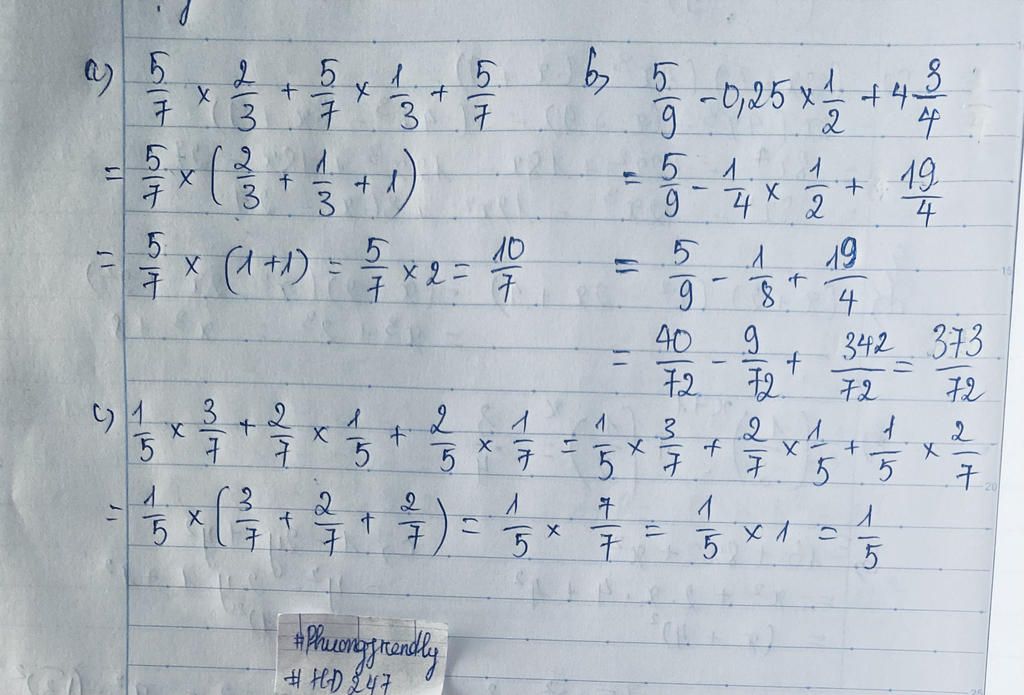 a) 5/7 × 2/3 + 5/7 × 1/3 + 5/7
= 5/7 × (2/3 + 1/3 + 1)
= 5/7 × (1+1) = 5/7 × 2 = 10/7
b) 5/9 - 0,25 × 1/2 + 4 3/4
= 5/9 - 1/4 × 1/2 + 19/4
= 5/9 - 1/8 + 19/4
= 40/72 - 9/72 + 342/72 = 373/72
c) 1/5 × 3/7 + 2/7 × 1/5 + 2/5 × 1/7 = 1/5 × 3/7 + 2/7 × 1/5 + 1/5 × 2/7
= 1/5 × (3/7 + 2/7 + 2/7) = 1/5 × 7/7 = 1/5 × 1 = 1/5
#Phuongfrendly
#HD247